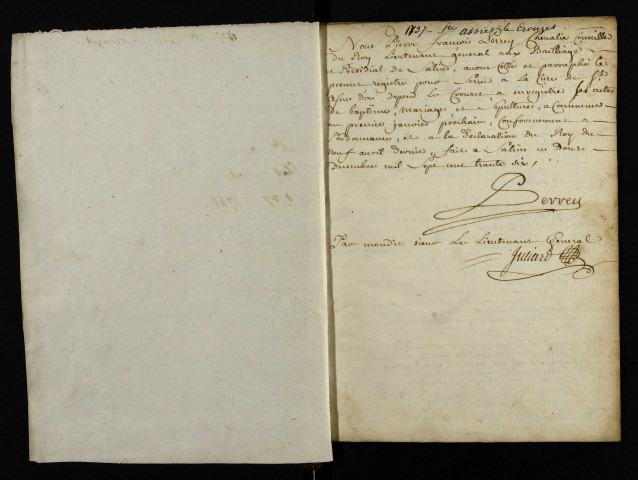 1737 - Ste agnes, le Crouzet
Nous Pierre François Perrey Chevalier Conseiller
du Roy Lieutenant général aux Bailliage
et Présidial de Salins, avons Cotté et parraphé le
present registre pour servir a la Cure de Ste
dou depend le Crouzet a enregistrer les actes
de baptême, mariages et sépultures, a Commencer
au premier janvier prochain, Conformement a
l'ordonnance, et a la declaration du Roy du
neuf avril dernier, fait a Salins ce douze
Decembre mil Sept cent trante six,
Perrey
Par mondit sieur Le Lieutenant General
Juliard